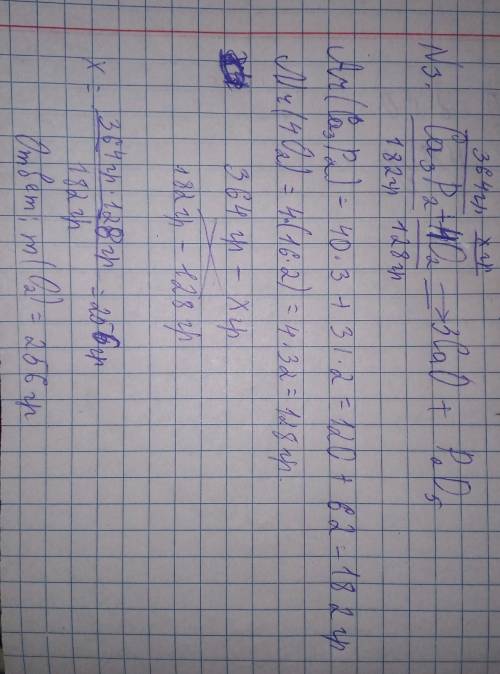 364 гр x гр
N3. Ca₃P₂ + 4O₂ → 3CaO + P₂O₅
182гр 128гр
Mr(Ca₃P₂) = 40·3 + 31·2 = 120 + 62 = 182 гр
Mr(4O₂) = 4·(16·2) = 4·32 = 128 гр.
364 гр – x гр
182 гр – 128 гр
x = 364 гр · 128 гр = 256 гр
182 гр
Ответ: m(O₂) = 256 гр